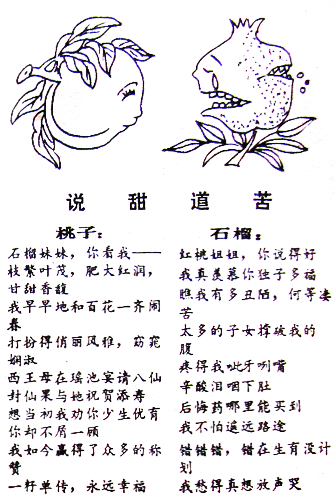 说甜道苦
桃子：
石榴妹妹，你看我——
枝繁叶茂，肥大红润，
甘甜香馥
我早早地和百花一齐闹
春
打扮得俏丽风雅，窈窕
娴淑
西王母在瑶池宴请八仙
封仙果与她祝贺添寿
想当初我劝你少生优育
你却不屑一顾
我如今赢得了众多的称
赞
一杆单传，永远幸福
石榴：
红桃姐姐，你说得好
我真羡慕你独子多福
瞧我有多丑陋，何等凄
苦
太多的子女撑破我的
腹
疼得我呲牙咧嘴
辛酸泪咽下肚
后悔药哪里能买到
我不怕遥远路途
错错错，错在生育没计
划
我愁得真想放声哭